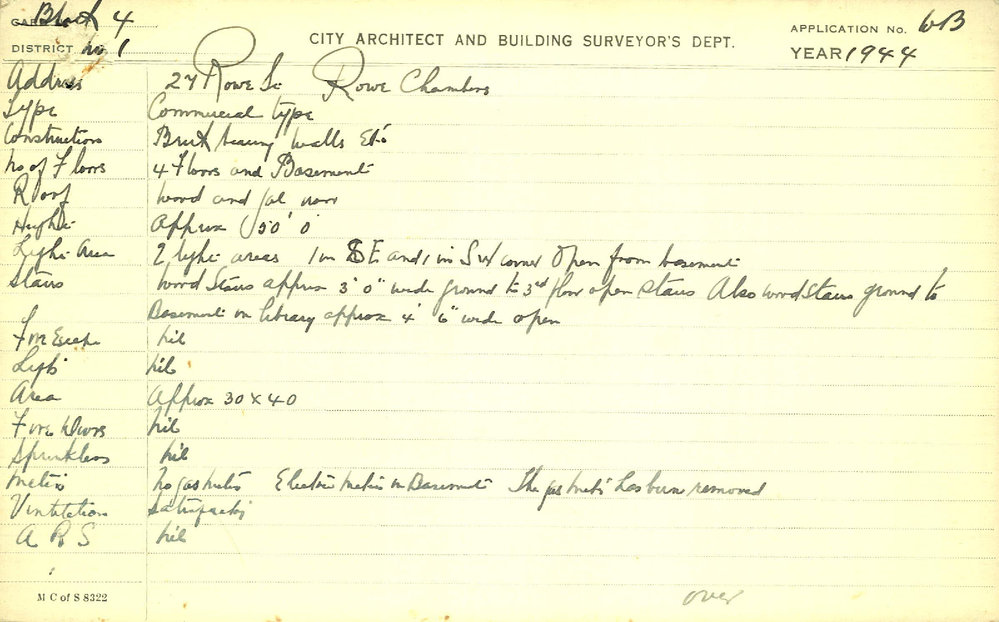 Block 4
DISTRICT No 1
CITY ARCHITECT AND BUILDING SURVEYOR'S DEPT.
APPLICATION No. WB
YEAR 1944
Address 27 Rowe St Rowe Chambers
Type Commercial type
Construction Brick bearing walls Etc
No of Floors 4 Floors and Basement
Roof Wood and Gal iron
Height Approx 50' 0
Light Area 2 light areas 1 in S E and 1 in S W corner Open from basement
Stairs Wood Stairs approx 3' 0" wide ground to 3rd floor open stairs Also wood stairs ground to
Basement in library approx 4' 6" wide open
Fire Escape nil
Lifts nil
Area Approx 30 x 40
Fire Doors nil
Sprinklers nil
Metres No gas metres Electric metres in Basement The gas metre has been removed
Ventilation Satisfactory
A R S nil
M C of S 8322
over